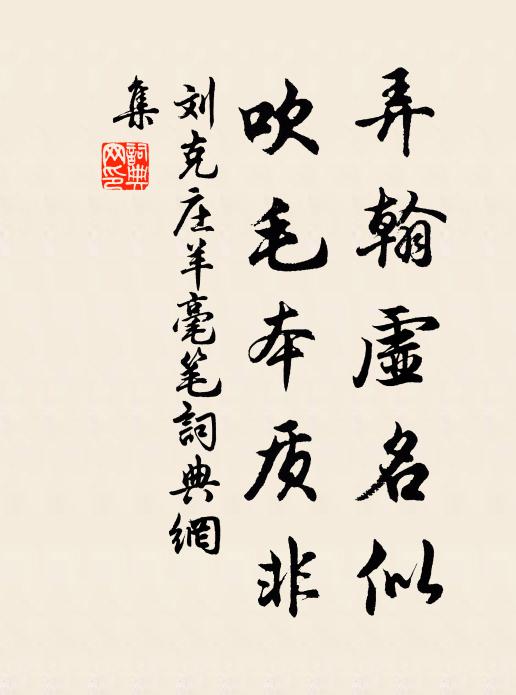 弄翰虚名似
吹毛本质非
刘克庄羊毫笔詞典網
集
詞典
网印